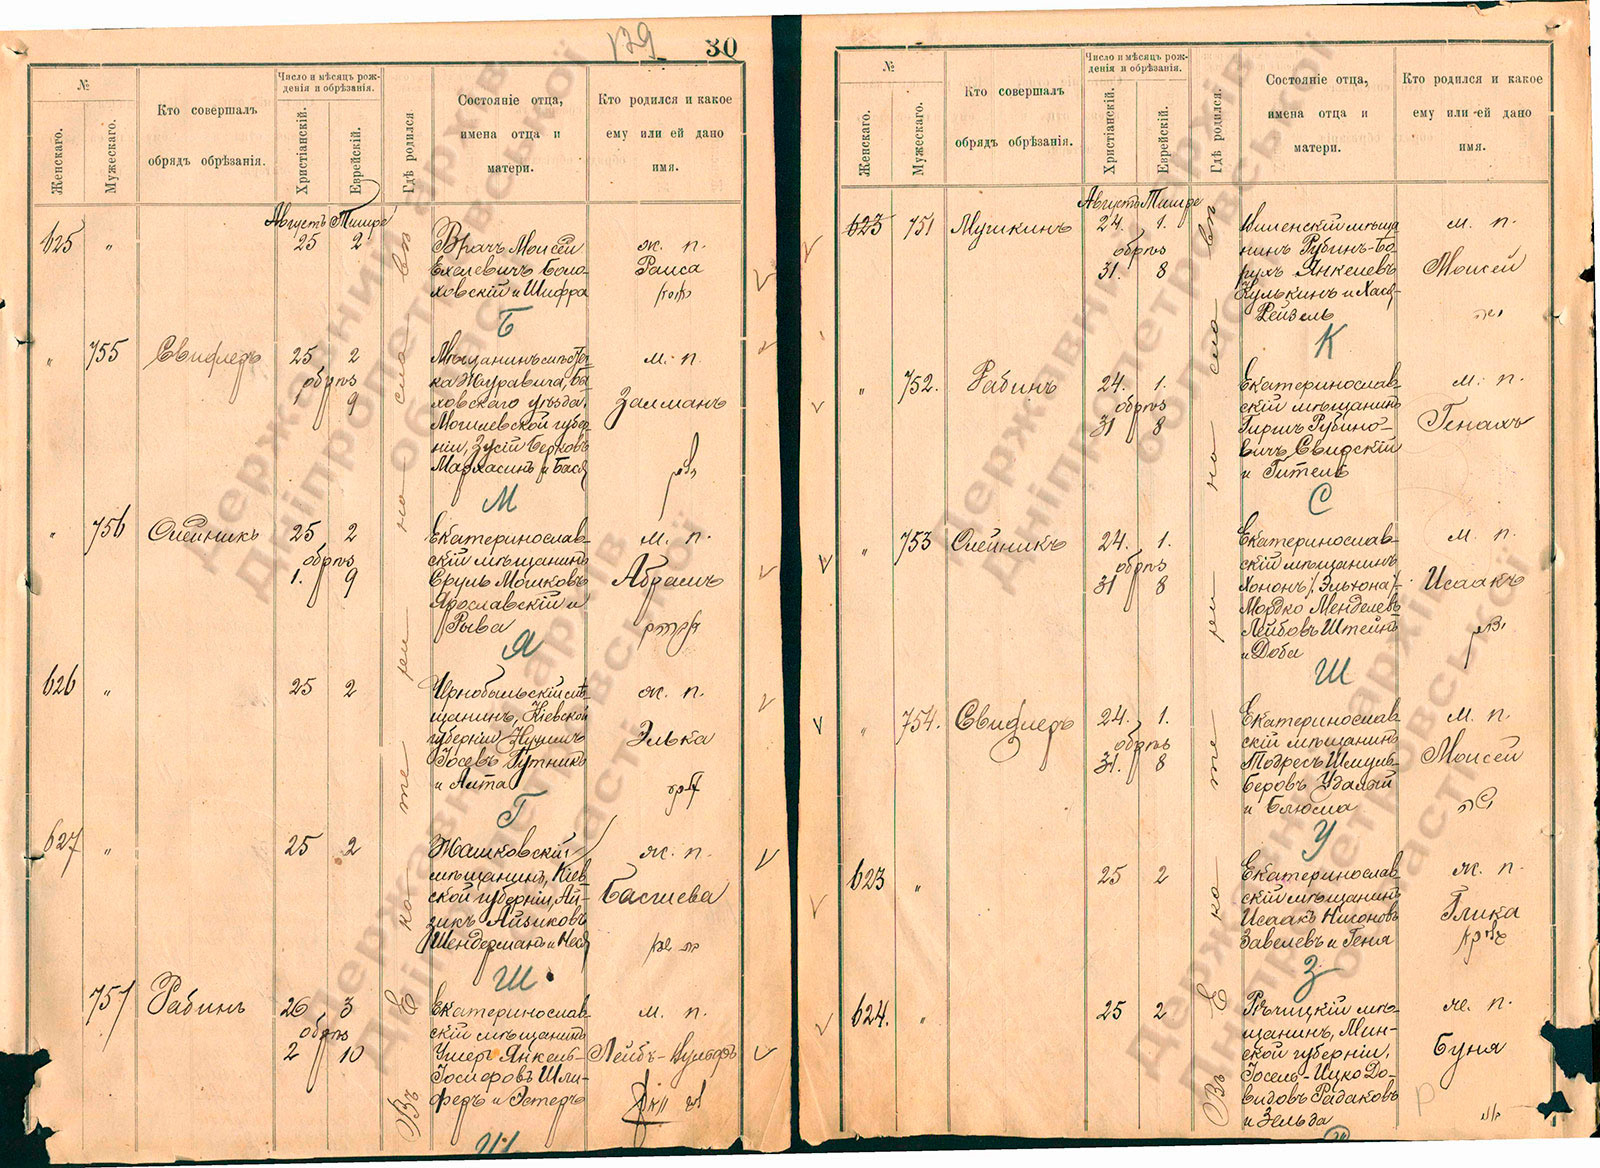 129
30
№
Женскаго.
Мужескаго.
Кто совершалъ
обрядъ обрѣзанія.
Число и мѣсяцъ рож-
денія и обрѣзанія.
Христіанскій.
Еврейскій.
Гдѣ родился
Состояніе отца,
имена отца и
матери.
Кто родился и какое
ему или ей дано
имя.
Августъ Тишре
625 " 25 2
Врачъ Моисей
Ехелевичъ Боло-
ховскій и Шифра
ж. п.
Раиса
Б
" 755 Свифлеръ 25 2
обрѣз
1 9
ка Журавича, Бы-
ховскаго уѣзда,
Могилевской губер-
ніи, Зусій Берковъ
Мархасинъ и Бася
м. п.
Залманъ
М
" 756 Олейникъ 25 2
обрѣз
1. 9
Екатеринослав-
скій мѣщанинъ
Сруль Мошковъ
Ярославскій и
Рыва
м. п.
Абрамъ
Я
626 " 25 2
Чернобыльскій мѣ-
щанинъ, Кіевской
губерніи
Іосевъ Гутникъ
и Алта
ж. п.
Элька
Г
627 " 25 2
Жашковскій
мѣщанинъ, Кіев-
ской губерніи, Ай-
зикъ Айзиковъ
Шендерманъ и
ж. п.
Басшева
Ш
757 Рабинъ 26 3
обрѣз
2 10
Екатеринослав-
скій мѣщанинъ
Ушеръ Янкель-
Іосифовъ Шли-
феръ и Эстеръ
м. п.
Лейбъ-Вульфъ
Ш
Въ Екатеринославѣ
№
Женскаго.
Мужескаго.
Кто совершалъ
обрядъ обрѣзанія.
Число и мѣсяцъ рож-
денія и обрѣзанія.
Христіанскій.
Еврейскій.
Гдѣ родился.
Состояніе отца,
имена отца и
матери.
Кто родился и какое
ему или ей дано
имя.
Августъ Тишре
623 751 Мушкинъ 24. 1.
обрѣз
31. 8
Виленскій мѣща
нинъ Рубинъ-Бо-
рухъ Янкелевъ
Кулькинъ и Хася-
Рейзель
м. п.
Моисей
К
" 752. Рабинъ 24. 1.
обрѣз
31 8
Екатеринослав-
скій мѣщанинъ
Гиршъ Рубино-
вичъ Свирскій
и Гитель
м. п.
Генахъ
С
" 753 Олейникъ 24. 1.
обрѣз
31 8
Екатеринослав-
скій мѣщанинъ
Хононъ /Эльхона/-
Мордко Менделевъ
Лейбовъ Штейнъ
и Доба
м. п.
Исаакъ
Ш
" 754. Свифлеръ 24. 1.
обрѣз
31. 8
Екатеринослав-
скій мѣщанинъ
Тодресъ Шмуль-
Беровъ Удалый
и Блюма
м. п.
Моисей
У
623 " 25 2
Екатеринослав
скій мѣщанинъ
Исаакъ Нисоновъ
Завелевъ и Геня
ж. п.
Глика
З
624. " 25 2
Рѣчицкій мѣ-
щанинъ, Мин-
ской губерніи,
Іосель-Ицко До-
видовъ Радаковъ
и Зельда
ж. п.
Буня
Р
Въ Екатеринославѣ
Державний архів
Дніпропетровської
області